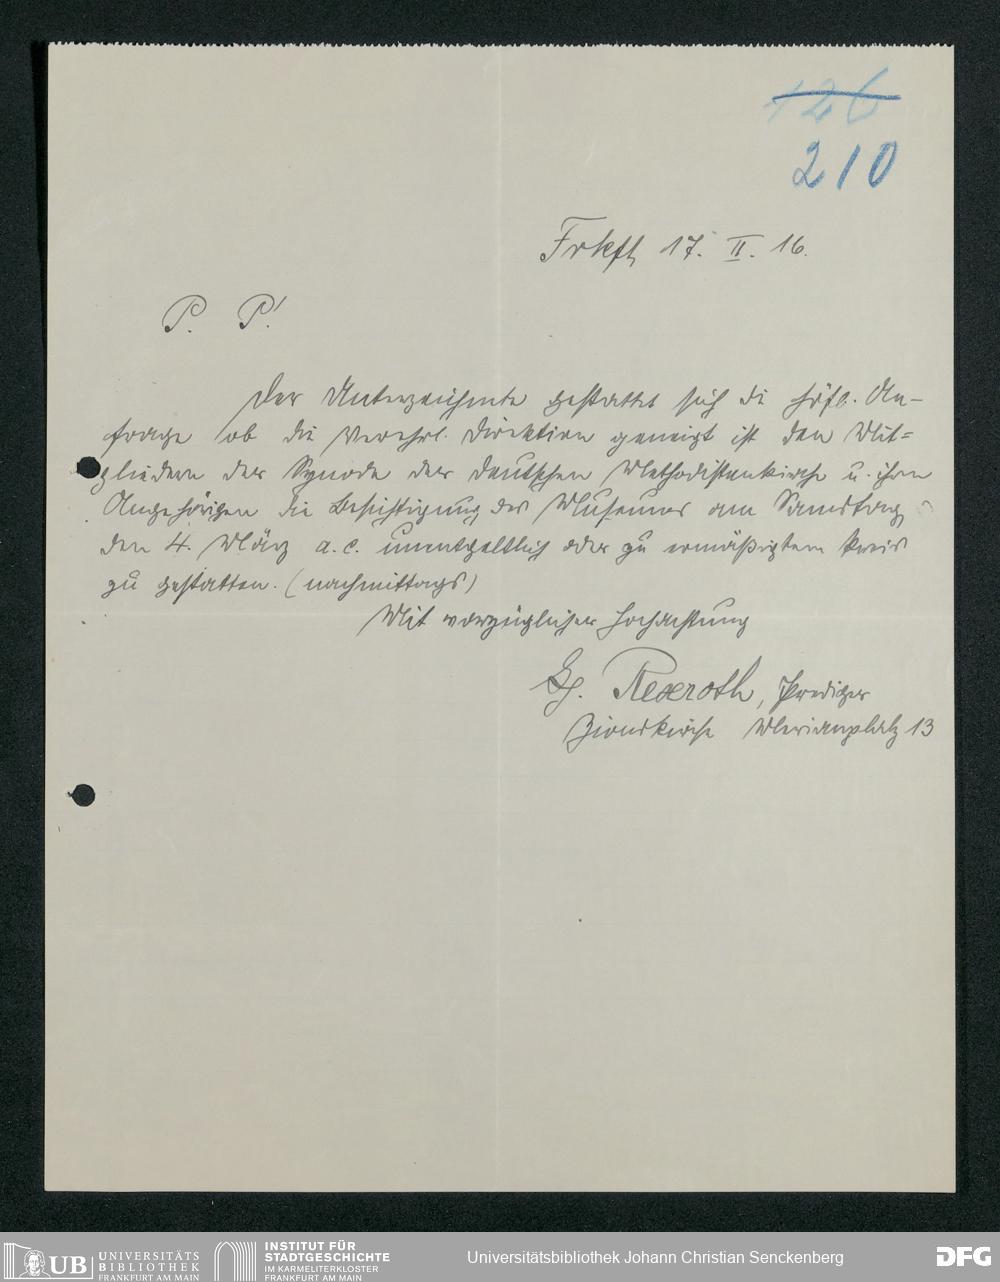 126
210
Frkft 17. II. 16.
P. P.!
Der Unterzeichnete gestattet sich die höfl. An-
frage ob die Verehrl. Direktion geneigt ist den Mit-
gliedern der Synode der deutschen Methodistenkirche u. ihren
Angehörigen die Besichtigung des Museums am Samstag
den 4. März a. c. unentgeltlich oder zu ermäßigtem Preis
zu gestatten. (nachmittags)
Mit vorzüglicher Hochachtung
Gg. Rexroth, Prediger
Zionskirche Merianplatz 13
UB UNIVERSITÄTS
BIBLIOTHEK
FRANKFURT AM MAIN
INSTITUT FÜR
STADTGESCHICHTE
IM KARMELITERKLOSTER
FRANKFURT AM MAIN
Universitätsbibliothek Johann Christian Senckenberg
DFG